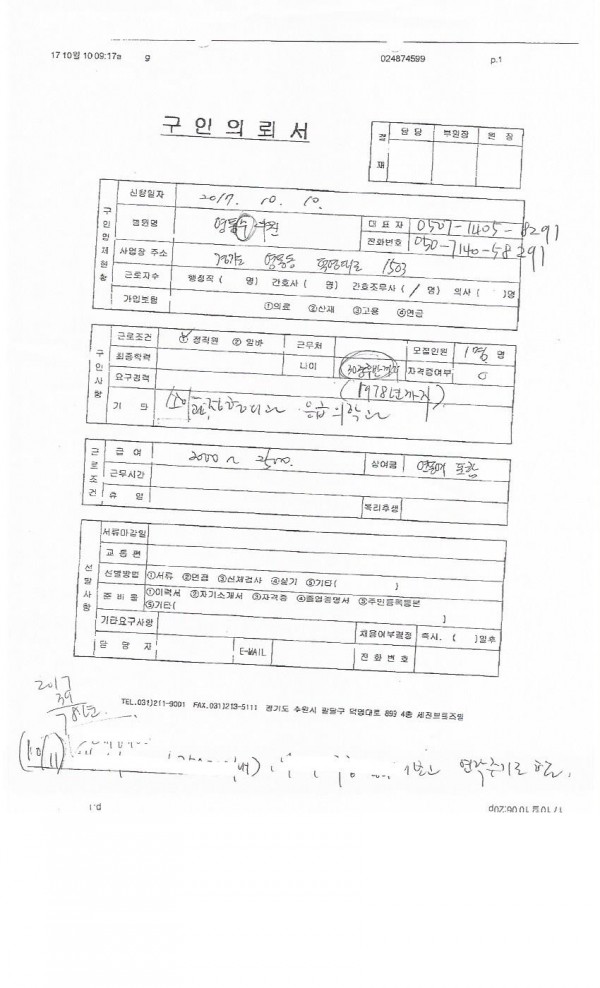 17 10월 10 09:17a g 024874599 p.1
구 인 의 뢰 서
결 재 담 당 부원장 원 장
구인업체현황
신청일자 2017. 10. 10.
병원명 영통수 대 표 자 0507-1405-8291
전화번호 050-7140-58291
사업장 주소 경기도 영통동 덕영대로 1503
근로자수 행정직 ( 명) 간호사 ( 명) 간호조무사 ( / 명) 의사 ( )명
가입보험 ①의료 ②산재 ③고용 ④연금
구인사항
근로조건 ① 정직원 ② 알바 근무처 모집인원 1명 명
최종학력 나이 30중후반까지 자격증여부 0
요구경력 (1978년까지)
기 타 응급의학과
근로조건
급 여 2000 ~ 2500. 상여금 연봉에 포함
근무시간
휴 일 복리후생
선발사항
서류마감일
교 통 편
선발방법 ①서류 ②면접 ③신체검사 ④실기 ⑤기타( )
준 비 물 ①이력서 ②자기소개서 ③자격증 ④졸업증명서 ⑤주민등록등본
⑤기타( )
기타요구사항 채용여부결정 즉시. ( )일후
담 당 자 E-MAIL 전 화 번 호
2017
39
78년
TEL.031)211-9001 FAX.031)213-5111 경기도 수원시 팔달구 덕영대로 893 4층 세진브르즈빌
(10/11) 연락주기로 함.
p.1